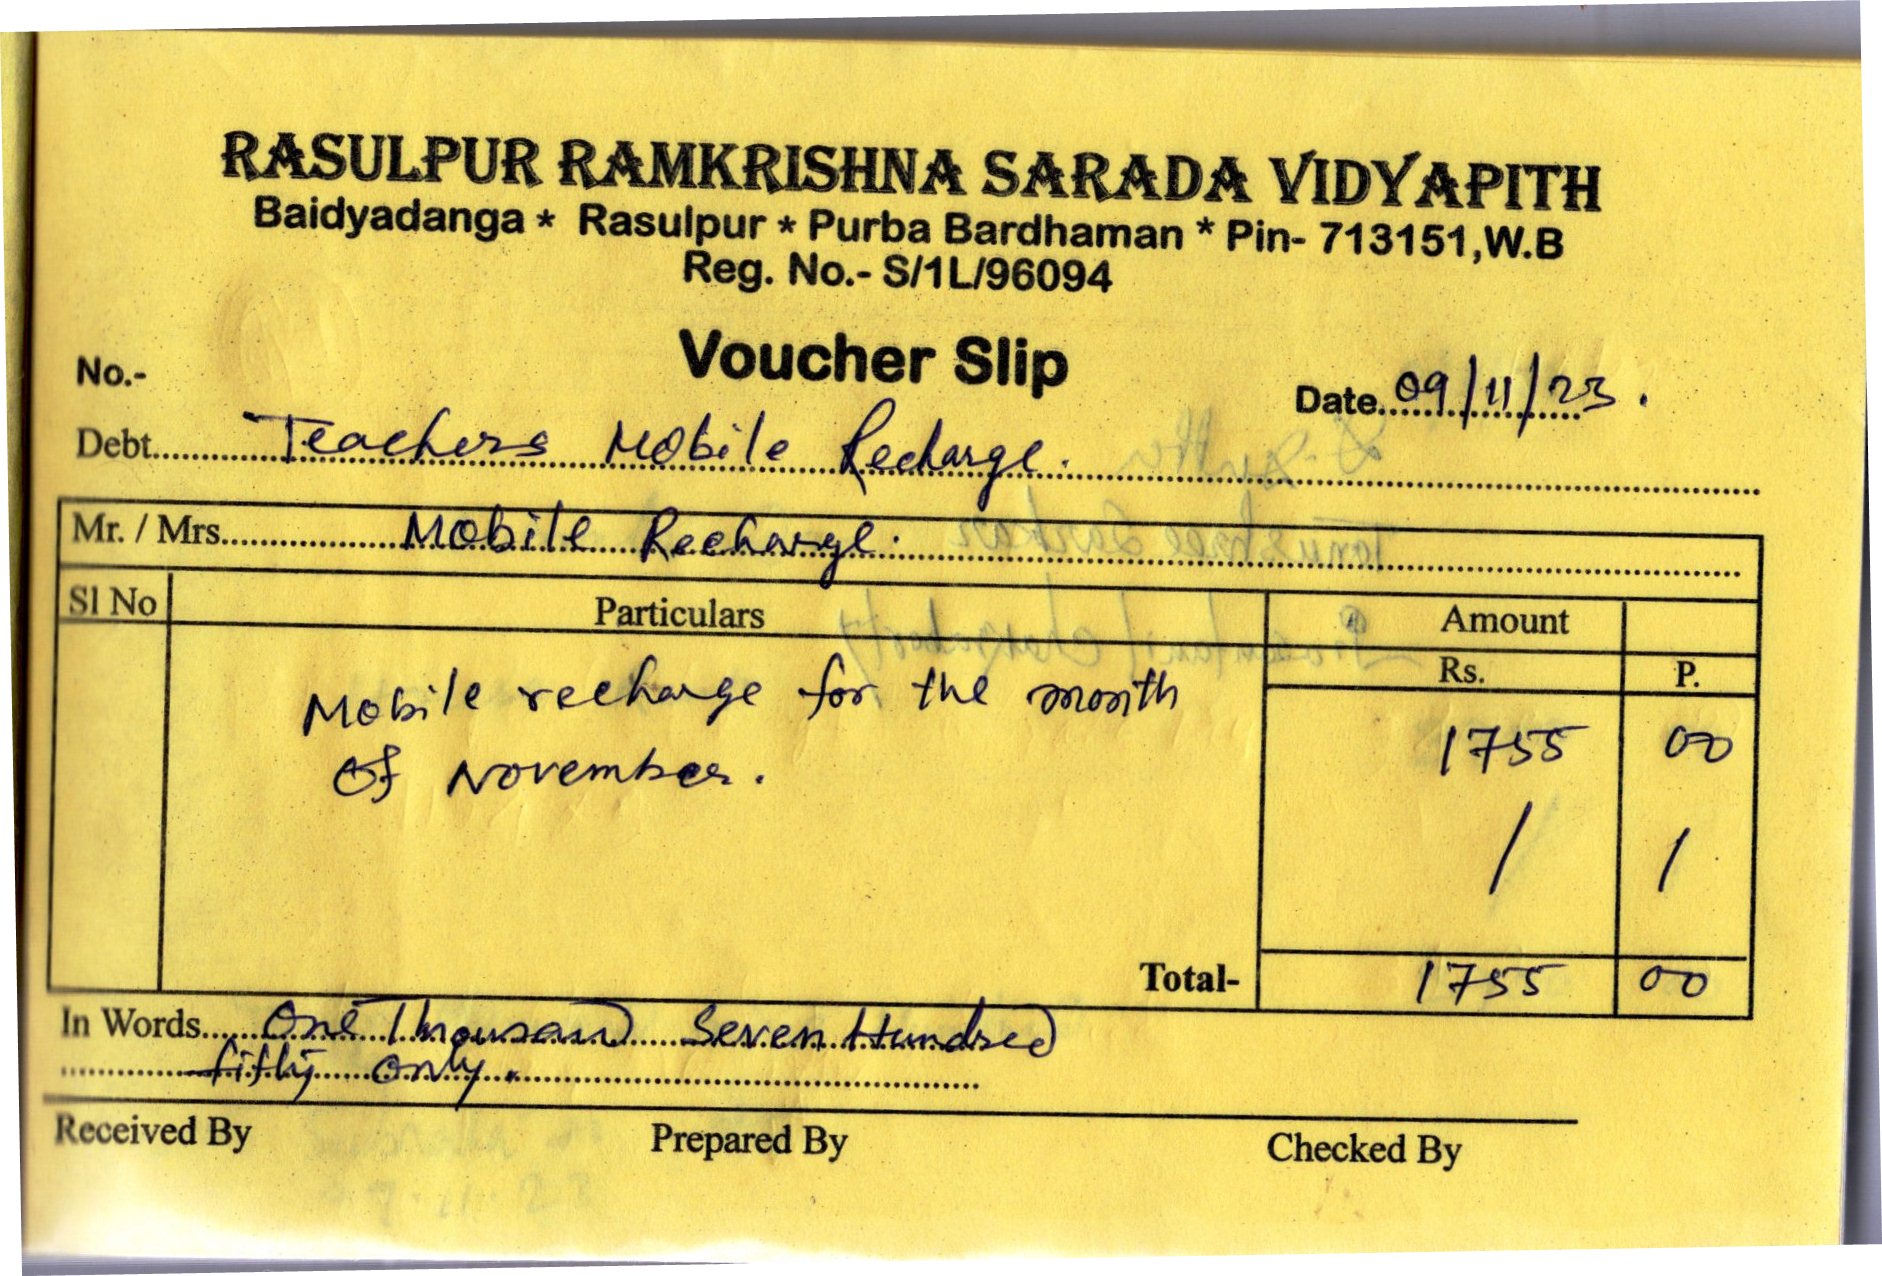 RASULPUR RAMKRISHNA SARADA VIDYAPITH
Baidyadanga * Rasulpur * Purba Bardhaman * Pin- 713151,W.B
Reg. No.- S/1L/96094
Voucher Slip
No.-
Date 09/11/23.
Debt Teachers Mobile Recharge.
Mr. / Mrs. Mobile Recharge.
Sl No Particulars Amount
Rs. P.
Mobile recharge for the month
of November.
1755 00
/ /
Total- 1755 00
In Words One Thousand Seven Hundred
fifty only.
Received By Prepared By Checked By